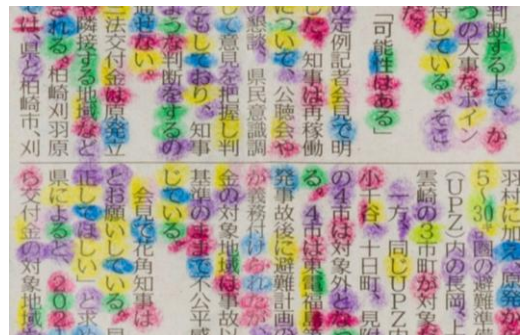 判断する上で、か
つの大事なポイン
待している。そこ
た。
「可能性はある」
の定例記者会見で明
した。知事は再稼働
について、公聴会や
の懇談、県民意識調
して意見を把握し判
ともしており、知事
ような判断をするの
せない。
法交付金は原発立
隣接する地域など
される。柏崎刈羽原
は県と柏崎市、刈
羽村に加え、原発か
5~30㌔圏の避難準
(UPZ)内の長岡、
雲崎の3市町が対象
一方、同じUPZ内
小千谷、十日町、見
の4市は対象外とな
る。4市は東電福島
発事故後に避難計画の
が義務付けられたが
金の対象地域は事故以
基準のままで不公平感
じている。
会見で花角知事は
とお願いしている。見
正してほしい」と求め
県によると、202
ら交付金の対象地域